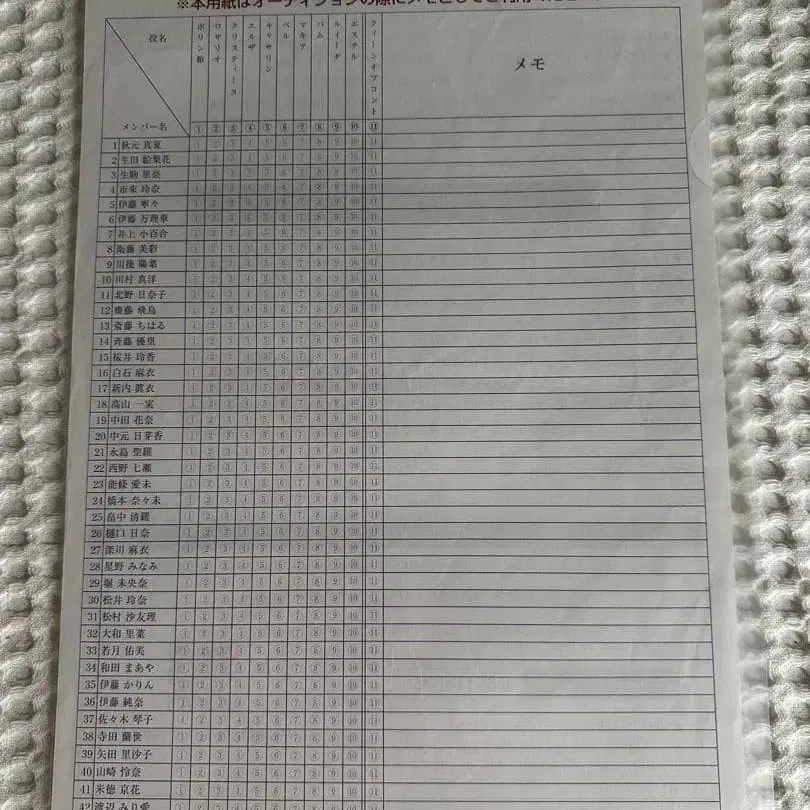 ※本用紙はオーディションの際にメモとしてご利用
役名 ポリン姫 ロザリオ クリスティーヌ エルザ キャサリン ベル マキア パム ルイーダ エステル クィーンオブコント メモ
メンバー名 ① ② ③ ④ ⑤ ⑥ ⑦ ⑧ ⑨ ⑩ ⑪
1 秋元 真夏 ① ② ③ ④ ⑤ ⑥ ⑦ ⑧ ⑨ ⑩ ⑪
2 生田 絵梨花 ① ② ③ ④ ⑤ ⑥ ⑦ ⑧ ⑨ ⑩ ⑪
3 生駒 里奈 ① ② ③ ④ ⑤ ⑥ ⑦ ⑧ ⑨ ⑩ ⑪
4 市來 玲奈 ① ② ③ ④ ⑤ ⑥ ⑦ ⑧ ⑨ ⑩ ⑪
5 伊藤 寧々 ① ② ③ ④ ⑤ ⑥ ⑦ ⑧ ⑨ ⑩ ⑪
6 伊藤 万理華 ① ② ③ ④ ⑤ ⑥ ⑦ ⑧ ⑨ ⑩ ⑪
7 井上 小百合 ① ② ③ ④ ⑤ ⑥ ⑦ ⑧ ⑨ ⑩ ⑪
8 衛藤 美彩 ① ② ③ ④ ⑤ ⑥ ⑦ ⑧ ⑨ ⑩ ⑪
9 川後 陽菜 ① ② ③ ④ ⑤ ⑥ ⑦ ⑧ ⑨ ⑩ ⑪
10 川村 真洋 ① ② ③ ④ ⑤ ⑥ ⑦ ⑧ ⑨ ⑩ ⑪
11 北野 日奈子 ① ② ③ ④ ⑤ ⑥ ⑦ ⑧ ⑨ ⑩ ⑪
12 齋藤 飛鳥 ① ② ③ ④ ⑤ ⑥ ⑦ ⑧ ⑨ ⑩ ⑪
13 斎藤 ちはる ① ② ③ ④ ⑤ ⑥ ⑦ ⑧ ⑨ ⑩ ⑪
14 斉藤 優里 ① ② ③ ④ ⑤ ⑥ ⑦ ⑧ ⑨ ⑩ ⑪
15 桜井 玲香 ① ② ③ ④ ⑤ ⑥ ⑦ ⑧ ⑨ ⑩ ⑪
16 白石 麻衣 ① ② ③ ④ ⑤ ⑥ ⑦ ⑧ ⑨ ⑩ ⑪
17 新内 眞衣 ① ② ③ ④ ⑤ ⑥ ⑦ ⑧ ⑨ ⑩ ⑪
18 高山 一実 ① ② ③ ④ ⑤ ⑥ ⑦ ⑧ ⑨ ⑩ ⑪
19 中田 花奈 ① ② ③ ④ ⑤ ⑥ ⑦ ⑧ ⑨ ⑩ ⑪
20 中元 日芽香 ① ② ③ ④ ⑤ ⑥ ⑦ ⑧ ⑨ ⑩ ⑪
21 永島 聖羅 ① ② ③ ④ ⑤ ⑥ ⑦ ⑧ ⑨ ⑩ ⑪
22 西野 七瀬 ① ② ③ ④ ⑤ ⑥ ⑦ ⑧ ⑨ ⑩ ⑪
23 能條 愛未 ① ② ③ ④ ⑤ ⑥ ⑦ ⑧ ⑨ ⑩ ⑪
24 橋本 奈々未 ① ② ③ ④ ⑤ ⑥ ⑦ ⑧ ⑨ ⑩ ⑪
25 畠中 清羅 ① ② ③ ④ ⑤ ⑥ ⑦ ⑧ ⑨ ⑩ ⑪
26 樋口 日奈 ① ② ③ ④ ⑤ ⑥ ⑦ ⑧ ⑨ ⑩ ⑪
27 深川 麻衣 ① ② ③ ④ ⑤ ⑥ ⑦ ⑧ ⑨ ⑩ ⑪
28 星野 みなみ ① ② ③ ④ ⑤ ⑥ ⑦ ⑧ ⑨ ⑩ ⑪
29 堀 未央奈 ① ② ③ ④ ⑤ ⑥ ⑦ ⑧ ⑨ ⑩ ⑪
30 松井 玲奈 ① ② ③ ④ ⑤ ⑥ ⑦ ⑧ ⑨ ⑩ ⑪
31 松村 沙友理 ① ② ③ ④ ⑤ ⑥ ⑦ ⑧ ⑨ ⑩ ⑪
32 大和 里菜 ① ② ③ ④ ⑤ ⑥ ⑦ ⑧ ⑨ ⑩ ⑪
33 若月 佑美 ① ② ③ ④ ⑤ ⑥ ⑦ ⑧ ⑨ ⑩ ⑪
34 和田 まあや ① ② ③ ④ ⑤ ⑥ ⑦ ⑧ ⑨ ⑩ ⑪
35 伊藤 かりん ① ② ③ ④ ⑤ ⑥ ⑦ ⑧ ⑨ ⑩ ⑪
36 伊藤 純奈 ① ② ③ ④ ⑤ ⑥ ⑦ ⑧ ⑨ ⑩ ⑪
37 佐々木 琴子 ① ② ③ ④ ⑤ ⑥ ⑦ ⑧ ⑨ ⑩ ⑪
38 寺田 蘭世 ① ② ③ ④ ⑤ ⑥ ⑦ ⑧ ⑨ ⑩ ⑪
39 矢田 里沙子 ① ② ③ ④ ⑤ ⑥ ⑦ ⑧ ⑨ ⑩ ⑪
40 山崎 怜奈 ① ② ③ ④ ⑤ ⑥ ⑦ ⑧ ⑨ ⑩ ⑪
41 米徳 京花 ① ② ③ ④ ⑤ ⑥ ⑦ ⑧ ⑨ ⑩ ⑪
42 渡辺 みり愛 ① ② ③ ④ ⑤ ⑥ ⑦ ⑧ ⑨ ⑩ ⑪